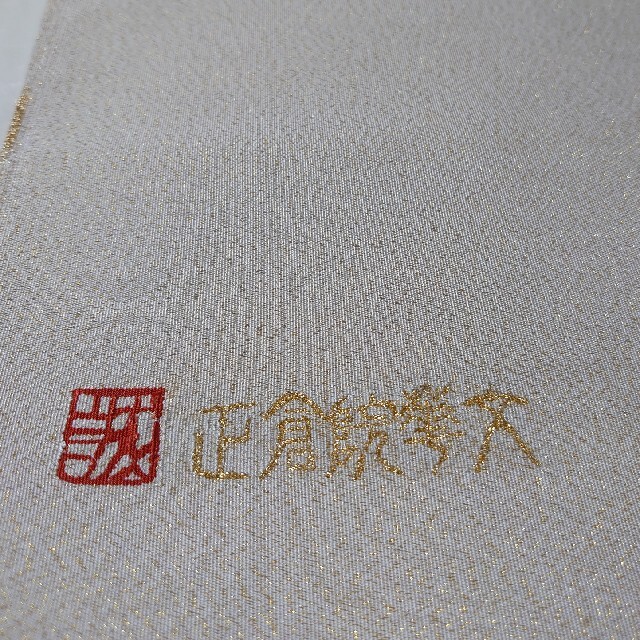 誠 正倉院華文